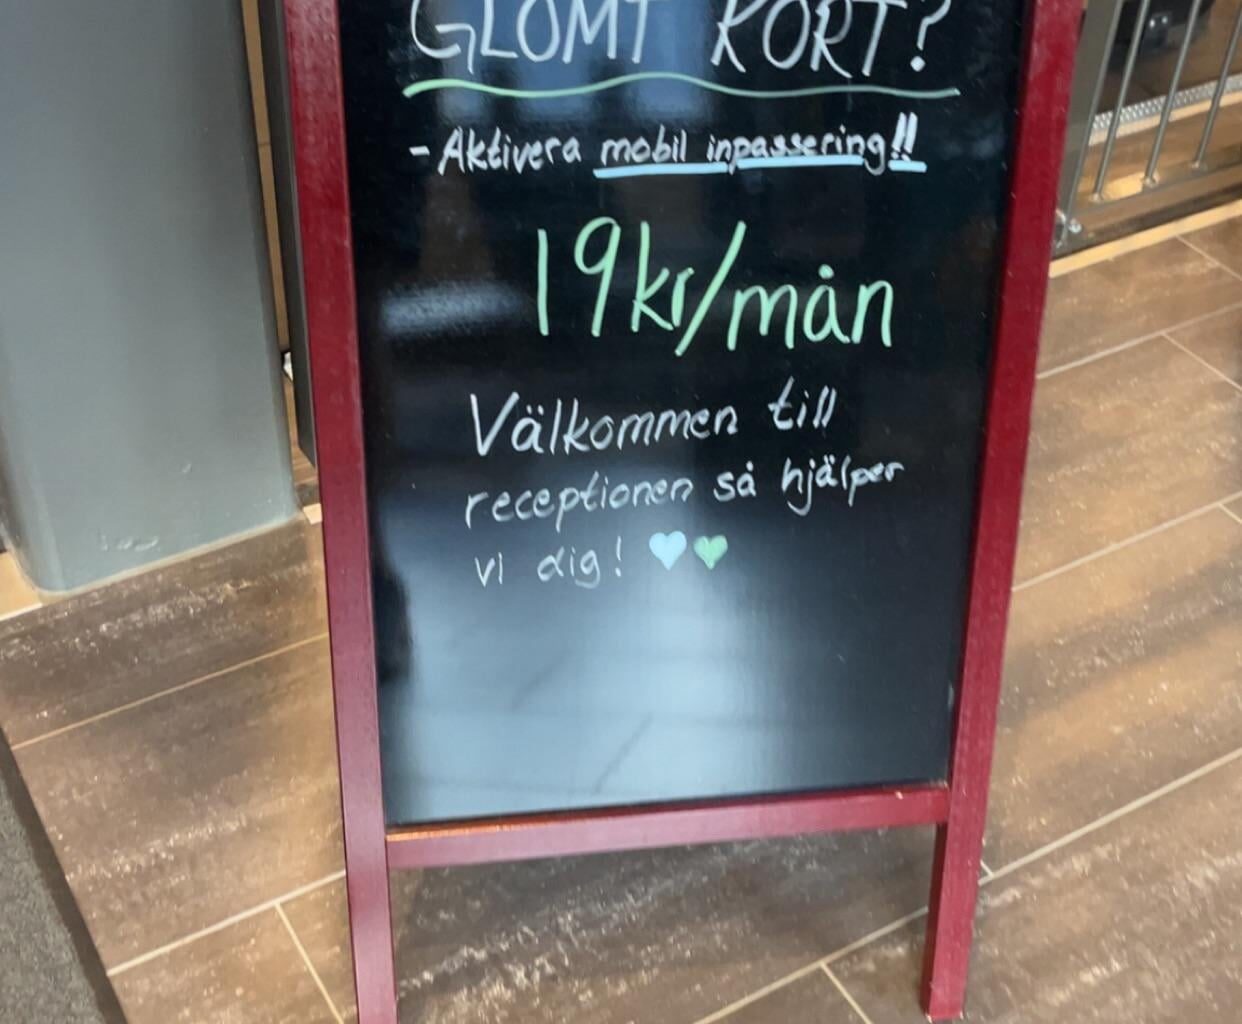 GLÖMT KORT?
- Aktivera mobil inpassering!!
19kr/mån
Välkommen till
receptionen så hjälper
vi dig!